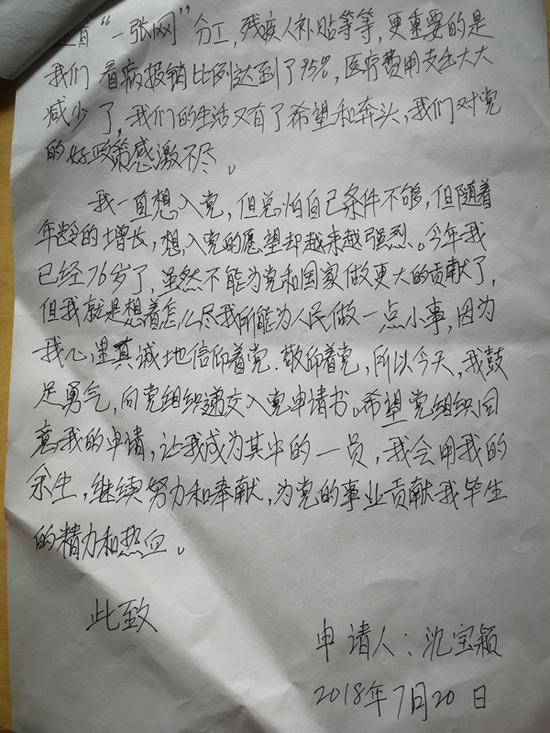 有“一张网”分工，残疾人补贴等等，更重要的是
我们看病报销比例达到了95%，医疗费用支出大大
减少了，我们的生活又有了希望和奔头，我们对党
的好政策感激不尽。
我一直想入党，但总怕自己条件不够，但随着
年龄的增长，想入党的愿望却越来越强烈。今年我
已经76岁了，虽然不能为党和国家做更大的贡献了，
但我就是想着怎么尽我所能为人民做一点小事，因为
我心里真诚地信仰着党．敬仰着党，所以今天，我鼓
足勇气，向党组织递交入党申请书。希望党组织同
意我的申请，让我成为其中的一员，我会用我的
余生，继续努力和奉献，为党的事业贡献我毕生
的精力和热血。
此致
申请人：沈宝颖
2018年7月20日